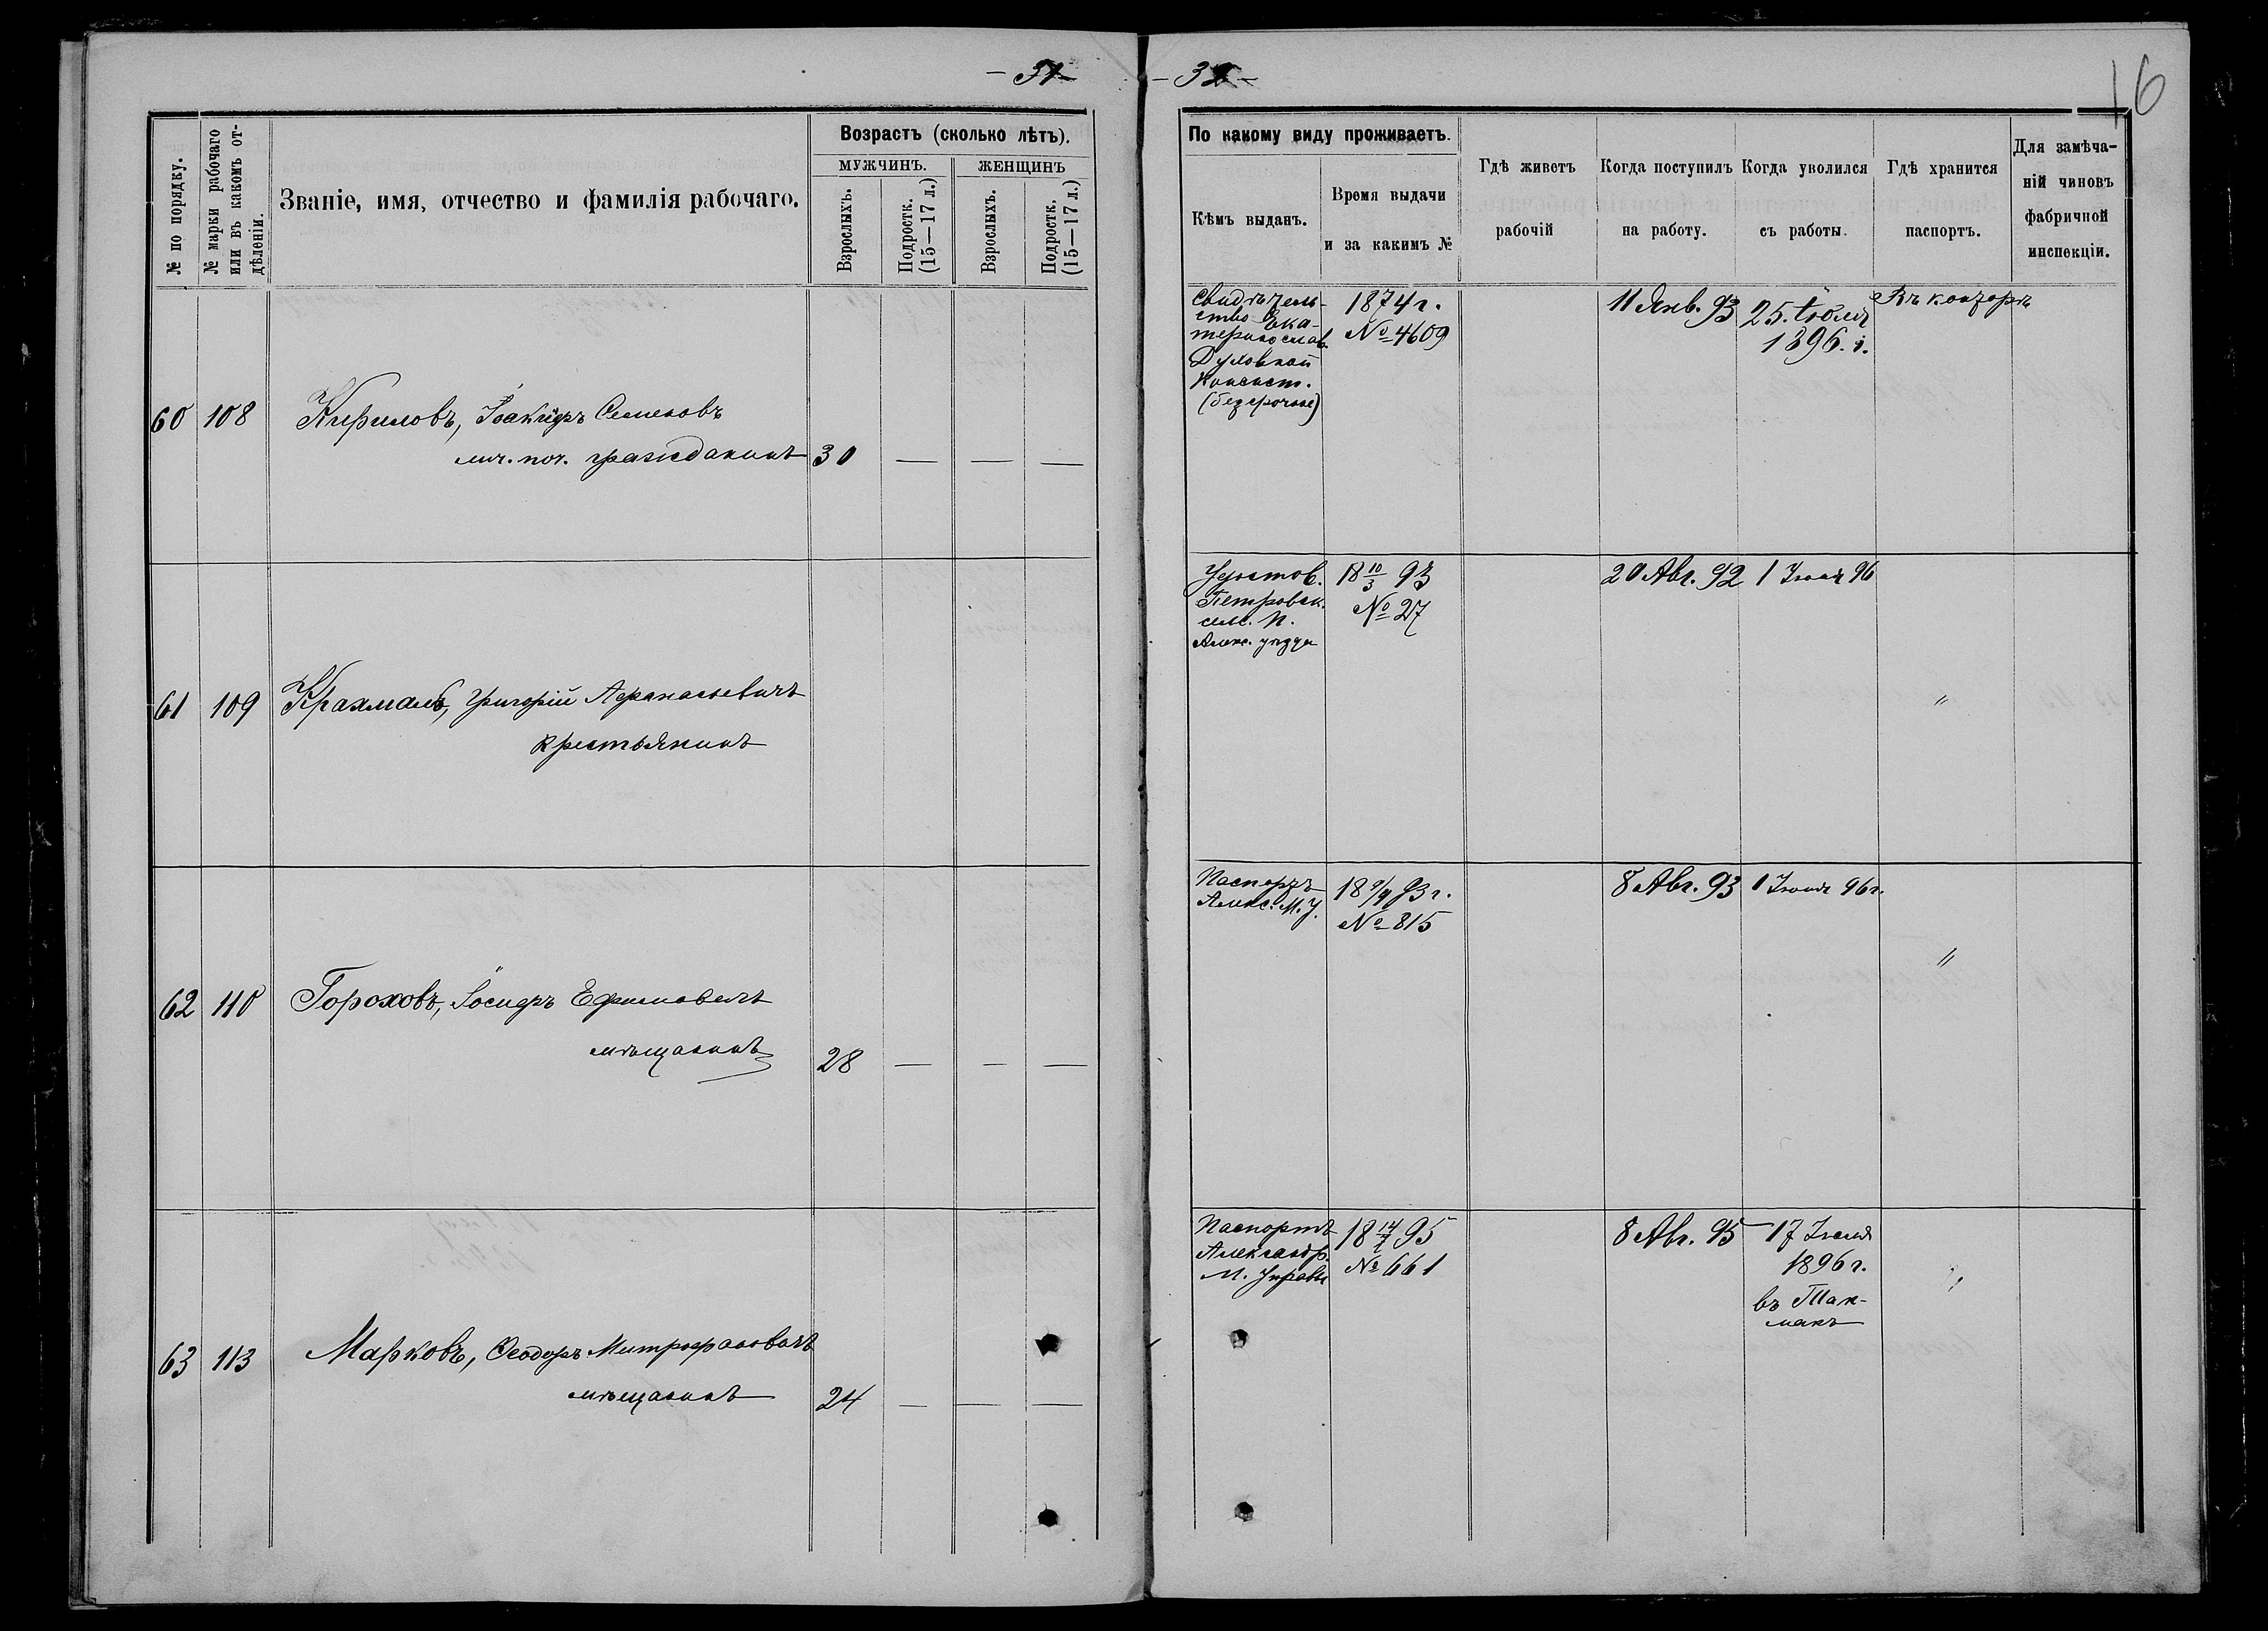 - 31 -
- 32 -
16
№ по порядку.
№ марки рабочаго или въ какомъ отдѣленіи.
Званіе, имя, отчество и фамилія рабочаго.
Возрастъ (сколько лѣтъ).
МУЖЧИНЪ.
ЖЕНЩИНЪ
Взрослыхъ.
Подростк. (15—17 л.)
Взрослыхъ.
Подростк. (15—17 л.)
По какому виду проживаетъ.
Кѣмъ выданъ.
Время выдачи
и за какимъ №
Гдѣ живетъ
рабочій
Когда поступилъ
на работу.
Когда уволился
съ работы.
Гдѣ хранится
паспортъ.
Для замѣча-
ній чиновъ
фабричной
инспекціи.
60 108 Кириловъ, Іоакифъ Семеновъ
лич. поч. гражданинъ 30 — — —
Свидѣтель-
ство Ека-
теринослав.
Духовной
Консист.
(безсрочное)
1874 г.
№ 4609
11 Янв. 93
25. Іюля
1896. г.
Въ конторѣ
61 109 Крахмаль, Григорій Афанасьевичъ
крестьянинъ
Петровск.
сел. П.
Алекс. уѣзда
18 10/3 93
№ 27
20 Авг. 92
96
"
62 110 Гороховъ, Іосифъ Ефимовичъ
мѣщанинъ 28 — — —
Паспортъ
Алекс. М. У.
93 г.
№ 815
8 Авг. 93
96 г.
"
63 113 Марковъ, Ѳеодоръ Митрофановичъ
мѣщанинъ 24 — — —
Паспортъ
Александр.
М. Управы
18 14/7 95
№ 661
8 Авг. 95
17 Іюля
1896 г.
въ Ток-
макъ
"